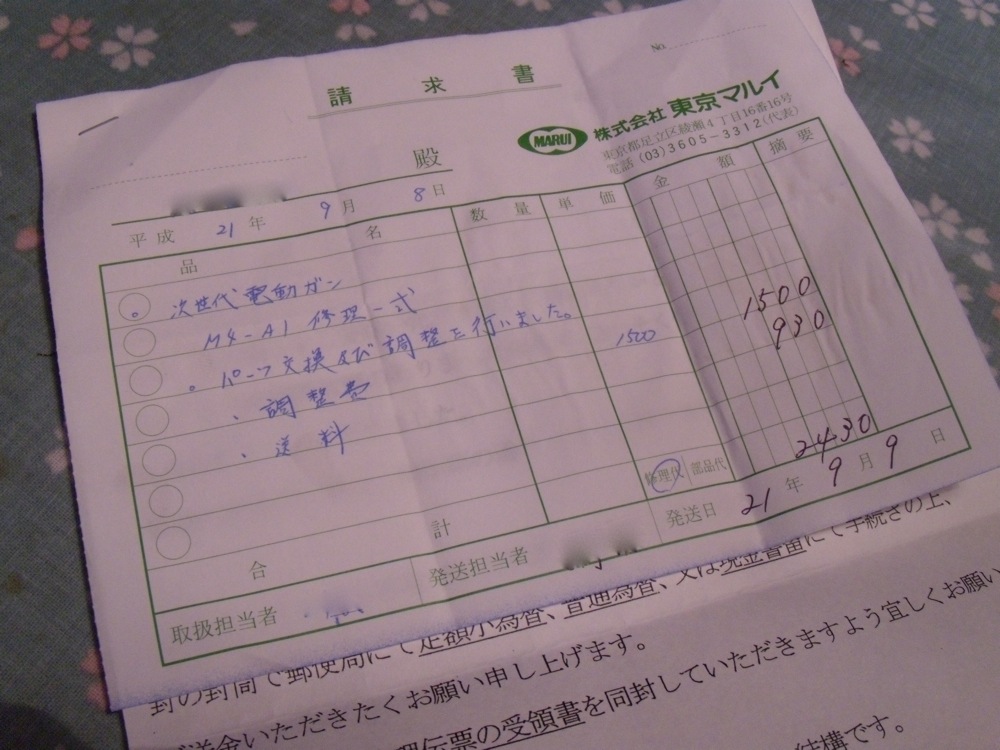 請求書
No.
殿
MARUI 株式会社 東京マルイ
東京都足立区綾瀬4丁目16番16号
電話 (03)3605-3312(代表)
平成 21年 9月 8日
品名 数量 単価 金額 摘要
。次世代電動ガン
M4-A1 修理一式
。パーツ交換及び調整を行いました。
、調整費 1500 1500
、送料 930
合計 修理代 部品代 2430
取扱担当者 発送担当者 発送日 21年 9月 9日
にて手続きの上、
封の封筒で郵便局にて定額小為替、普通為替、又は現金書留
送金いただきたくお願い申し上げます。
伝票の受領書を同封していただきますよう宜しくお願い
結構です。